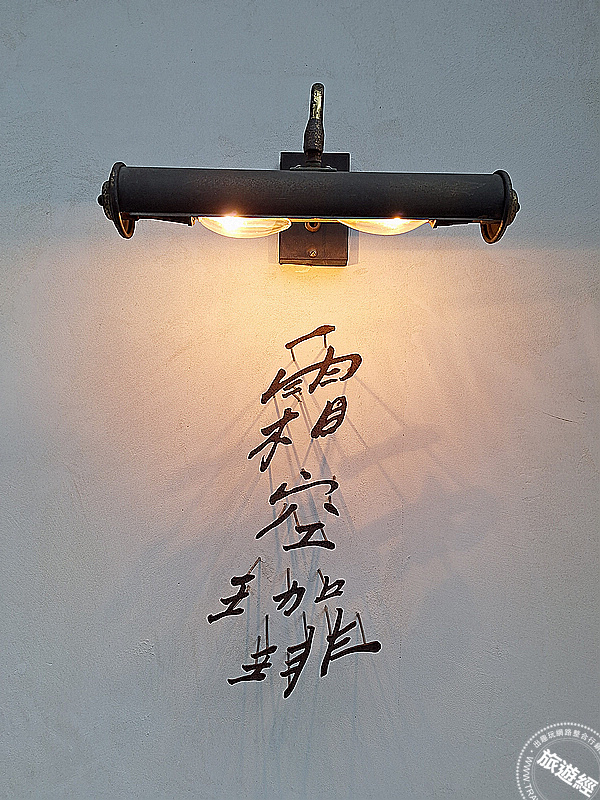 霜空珈琲
旅遊經